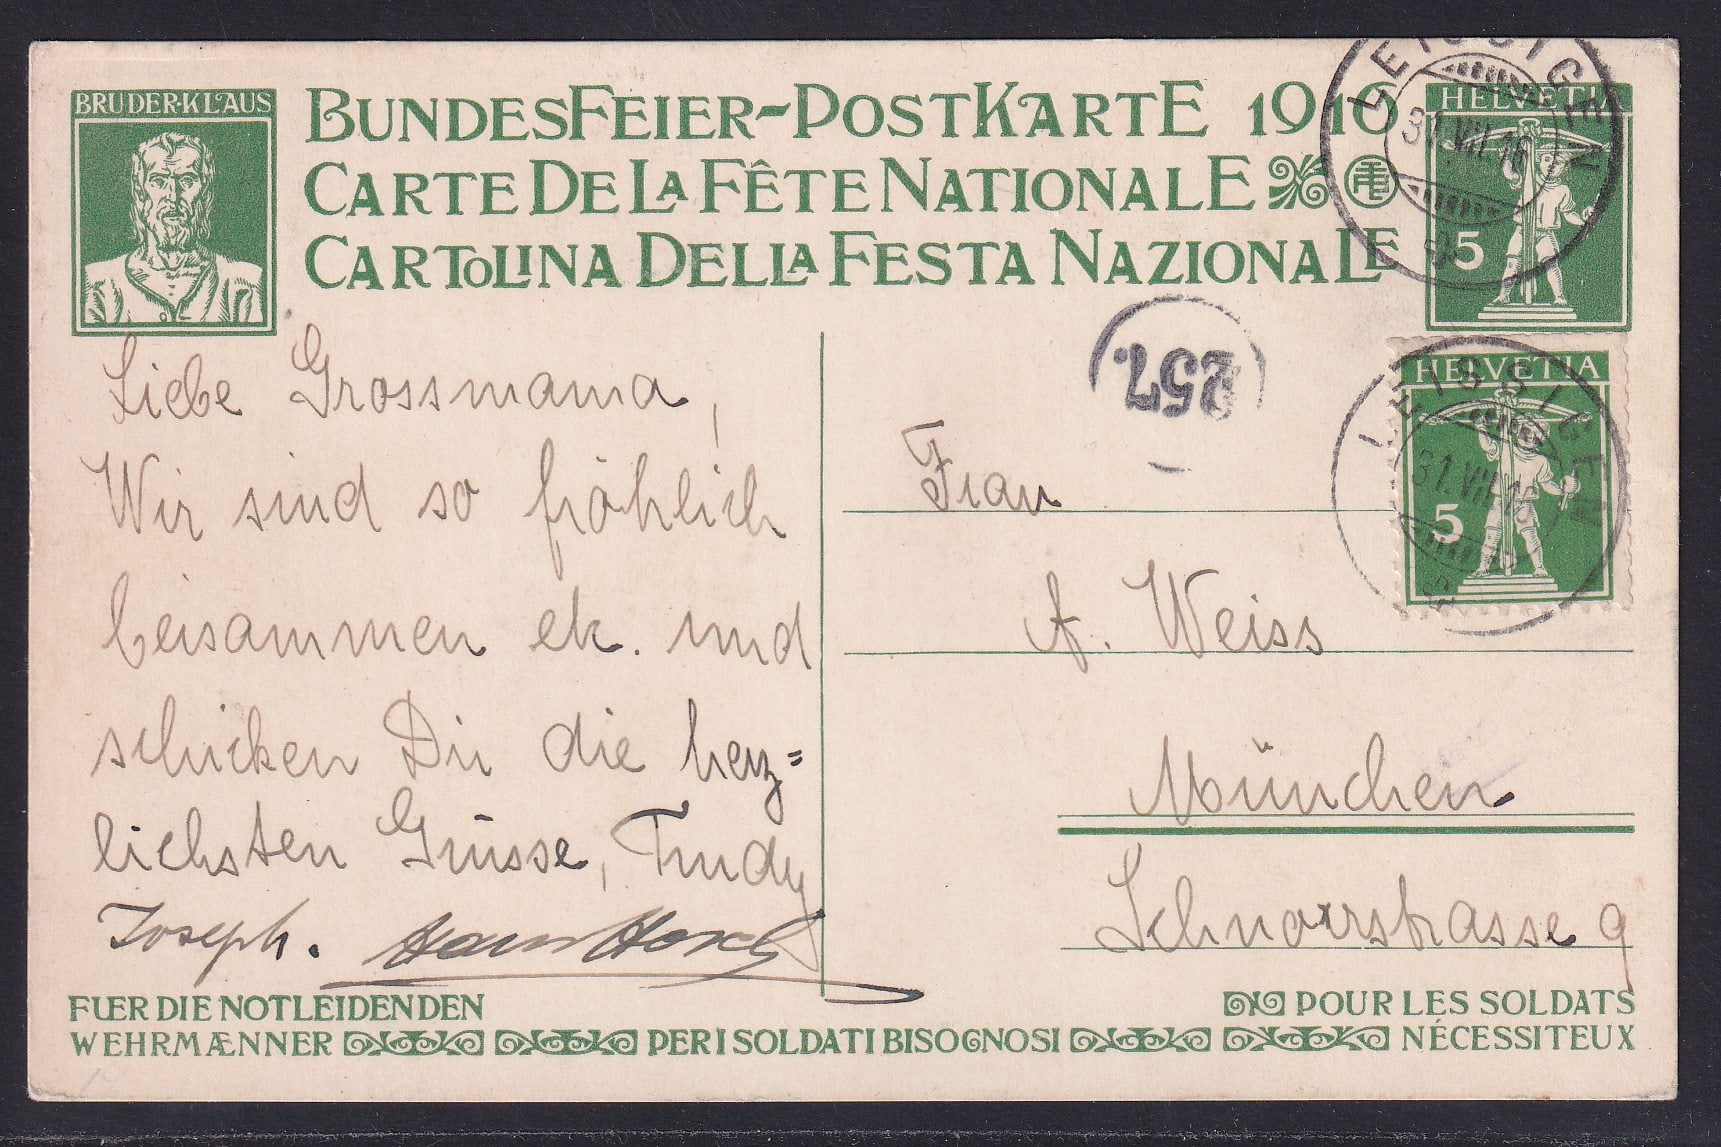 BRUDER·KLAUS
BUNDESFEIER-POSTKARTE 1916
CARTE DE LA FÊTE NATIONALE
CARTOLINA DELLA FESTA NAZIONALE
HELVETIA
5
LEISSIGEN
31.VII.16
HELVETIA
5
LEISSIGEN
31.VII.16
257.
Liebe Grossmama,
Wir sind so fröhlich
beisammen etc. und
schicken Dir die herz=
lichsten Grüsse, Trudy
Joseph.
Frau
A. Weiss
München
Schnorrstrasse 9
FUER DIE NOTLEIDENDEN
WEHRMÆNNER
PER I SOLDATI BISOGNOSI
POUR LES SOLDATS
NÉCESSITEUX